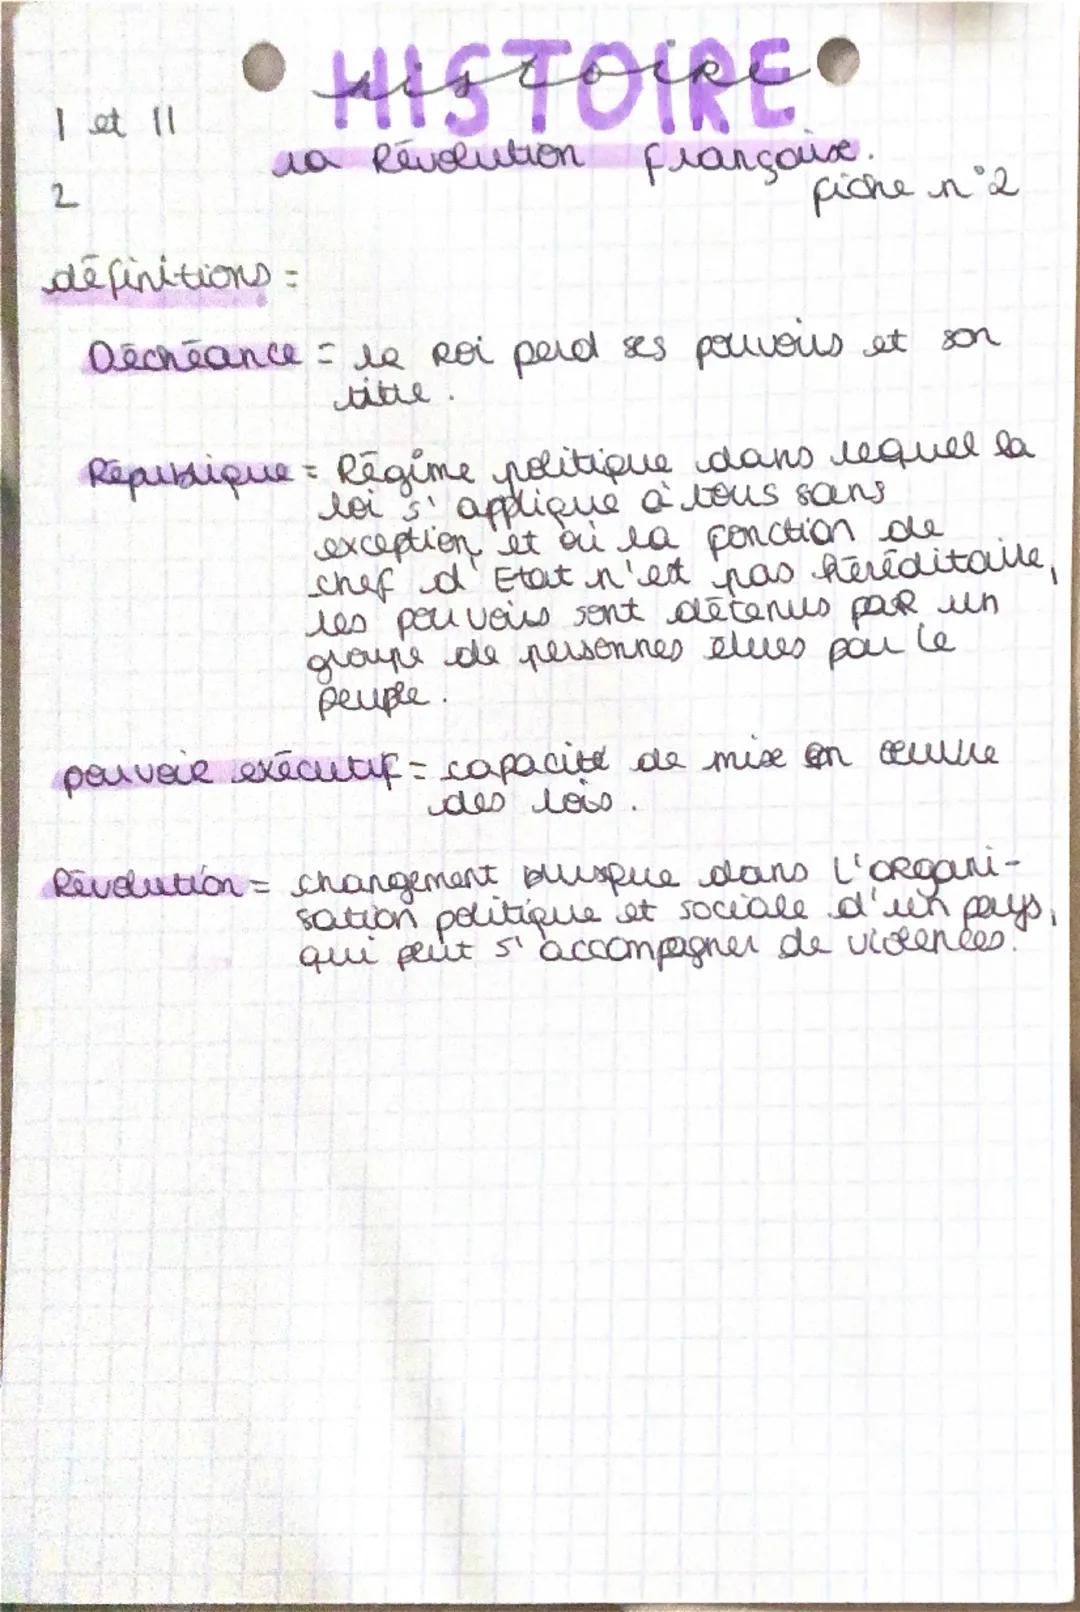 HISTOIRE
histoire
1 et 11
la Révolution française.
2
fiche n°2
définitions =
Déchéance = le Roi perd ses pouvoirs et son
titre.
République = Régime politique dans lequel la
loi s'applique à tous sans
exception et où la fonction de
chef d'Etat n'est pas héréditaire,
les pouvoirs sont détenus par un
groupe de personnes élues par le
peuple.
pouvoir exécutif = capacité de mise en œuvre
des lois.
Révolution = changement brusque dans l'organi-
sation politique et sociale d'un pays,
qui peut s'accompagner de violences.